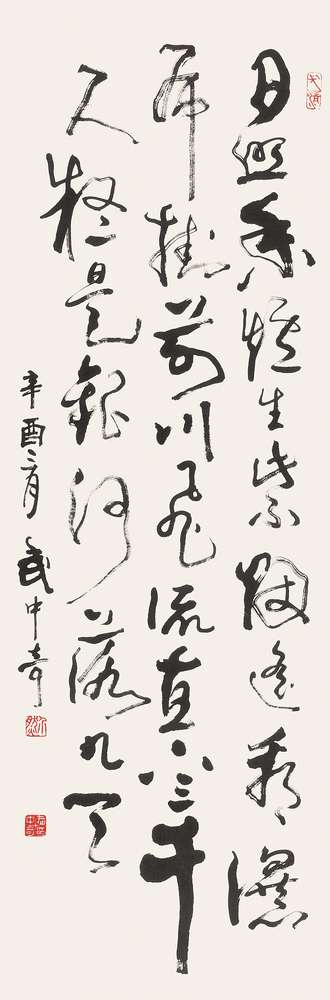 日照香炉生紫烟遥看瀑
布挂前川飛流直下三千
尺疑是銀河落九天
辛酉月 武中奇